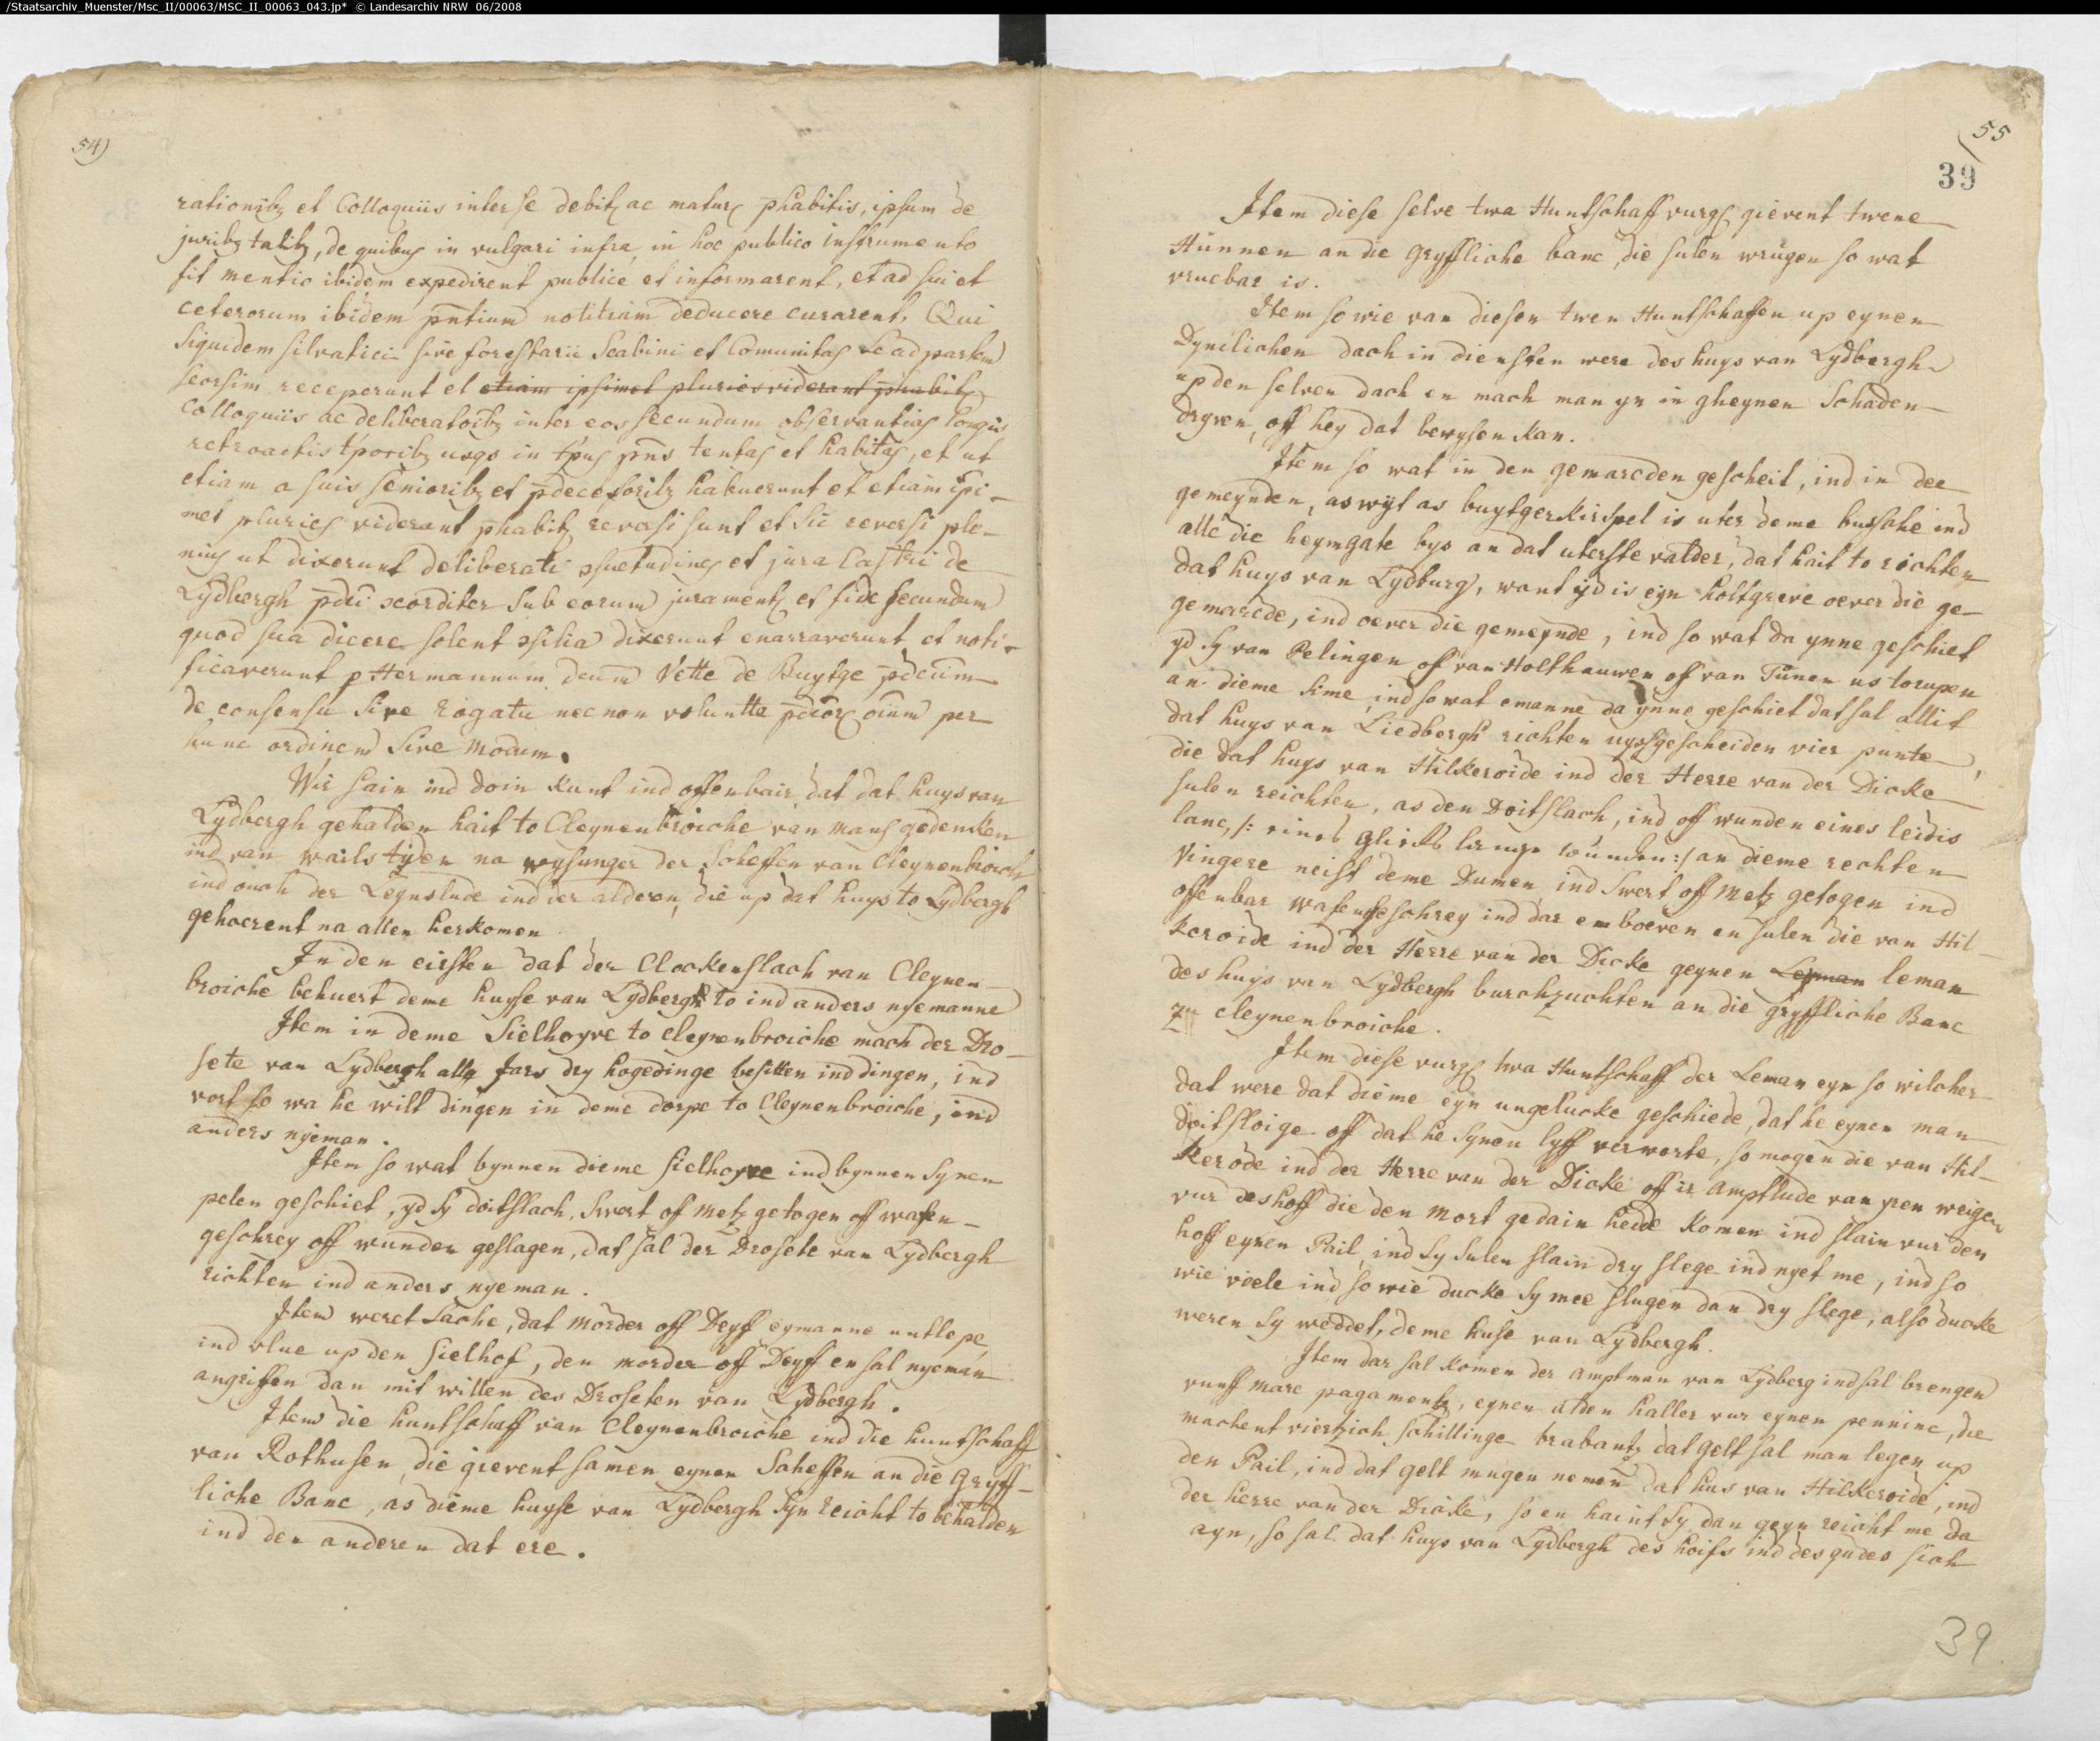 /Staatsarchiv_Muenster/Msc_II/00063/MSC_II_00063_043.jp* © Landesarchiv NRW 06/2008
54)
rationib₉ et Colloquiis inter se debit₉ ac matur₉ p̄habitis, ipsum de
jurib₉ talib₉, de quibus in vulgari infra, in hoc publico instrumento
fit mentio ibidem expedirent publice et informarent, et ad sui et
ceterorum ibidem pn̄tium notitiam deducere curarent. Qui
siquidem silvatici sive forestarii Scabini et Comunitas se ad partem
seorsim receperunt et etiam ipsimet pluries viderant p̄habit₉
Colloquiis ac deliberatoib₉ inter eos secundum observantias longis
retroactis tp̄orib₉ usqs in tp̄us pn̄s tentas et habitas, et ut
etiam a suis seniorib₉ et p̄decessorib₉ habuerunt et etiam ipi-
met pluries viderant p̄habit₉ reversi sunt et sic reversi ple-
nius ut dixerunt deliberati ɔsuetudines et jura Castri de
Lydbergh p̄dci ɔcorditer sub eorum jurament₉ et fide secundum
quod sua dicere solent ɔsilia dixerunt enarraverunt et noti-
ficaverunt p Hermannum dcum Vette de Buytge p̄dcum
de consensu sive rogatu necnon voluntte p̄dcor₉ oium per
hunc ordinem sive modum.
Wir sain ind doin kunt ind offenbair, dat dat huys van
Lydbergh gehalden hait to Cleynenbroiche van mans gedencken
ind van wails tyden na wysunger der Scheffen van Cleynenbroich
ind ouch der Leynslude ind ier alderen, die up dat huys to Lydbergh
gehoerent na allen herkomen
In den eirsten dat der Clockenslach van Cleynen-
broiche behuert deme huyse van Lydbergh to ind anders nyemanne
Item in deme Sielhoyve to Cleynenbroiche mach der Dro-
sete van Lydbergh alle Jars dry hogedinge besitten ind dingen, ind
vort so wa he wilt dingen in deme dorpe to Cleynenbroiche, ind
anders nyeman.
Item so wat bynnen dieme sielhoyve ind bynnen synen
pelen geschiet, yd sy doitslach, Swert of metz getogen off wafen-
geschrey off wunden geslagen, dat sal der Drosete van Lydbergh
richten ind anders nyeman.
Item weret Sache, dat morder off Deyff eymanne untlepe
ind vlue up den sielhof, den morder off Deyff en sal nyeman
angriffen dan mit willen des Droseten van Lydbergh.
Item die huntschaff van Cleynenbroiche ind die huntschaff
van Rothusen, die gievent samen eynen Scheffen an die Gryff-
liche Banc, as dieme huyse van Lydbergh syn reicht to behalden
ind den anderen dat ere.
55
39
Item diese selve twa Huntschaff vurgs gievent twene
Hunnen an die gryffliche banc, die sulen wrugen so wat
vrucbar is.
Item so wie van diesen twen Huntschaffen up eynen
Dynclichen dach in diensten were des huys van Lydbergh
up den selven dach en mach man yn in gheynen Schaden
dryven, off hey dat bewysen kan.
Item so wat in den gemarcden gescheit, ind in dee
gemeynden, as wyt as buytgerkirspel is uter deme bussche ind
alle die heymgate bys an dat uterste valder, dat hait to richten
dat huys van Lydburg, want yd is eyn holtgreve oever die ge-
gemarcde, ind oever die gemeynde, ind so wat da ynne geschiet
yd sy van Pelingen of van Holthauwen of van Tunen us torupen
an dieme sime, ind so wat emanne da ynne geschiet dat sal allit
dat huys van Liedbergh richten uyssgescheiden vier punte,
die dat huys van Hilkeroide ind der Herre van der Dicke
sulen reichten, as den Doitslach, ind off wunden eines leidis
lanc, /: eines glieds lange wunden :/ an dieme rechten
Vingere neist deme Dumen, ind Swert off Metz getogen ind
offenbar wafengeschrey ind dar emboeven en sulen die van Hil-
keroide ind der Herre van der Dicke geynen Leyman leman
des huys van Lydbergh burchzuchten an die gryffliche Banc
zu cleynenbroiche.
Item diese vurgs twa Huntschaff der Leman eyn so wilcher
dat were dat dieme eyn ungelucke geschiede, dat he eynen man
doitsloige off dat he synen lyff verworte, so mogen die van Hil-
kerode ind der Herre van der Dicke off ir amptlude van yren weigen
vur des hoff die den mort gedain hedde komen ind slain vur den
hoff eynen Pail, ind sy sulen slain dry slege ind nyet me, ind so
wie viele ind so wie ducke sy mee slugen dan dry slege, also ducke
weren sy weddet, deme huse van Lydbergh.
Item dar sal komen der amptman van Lydberg ind sal brengen
vunff marc pagamentz, eynen alden haller vur eynen penninc, die
machent vierzich schillinge brabantz dat gelt sal man legen up
den Pail, ind dat gelt mugen nemen dat hus van Hilkeroide, ind
der herre van der Dicke, so en haint sy dan geyn reicht me da
ayn, so sal dat huys van Lydbergh des hoifs ind des gudes sich
39